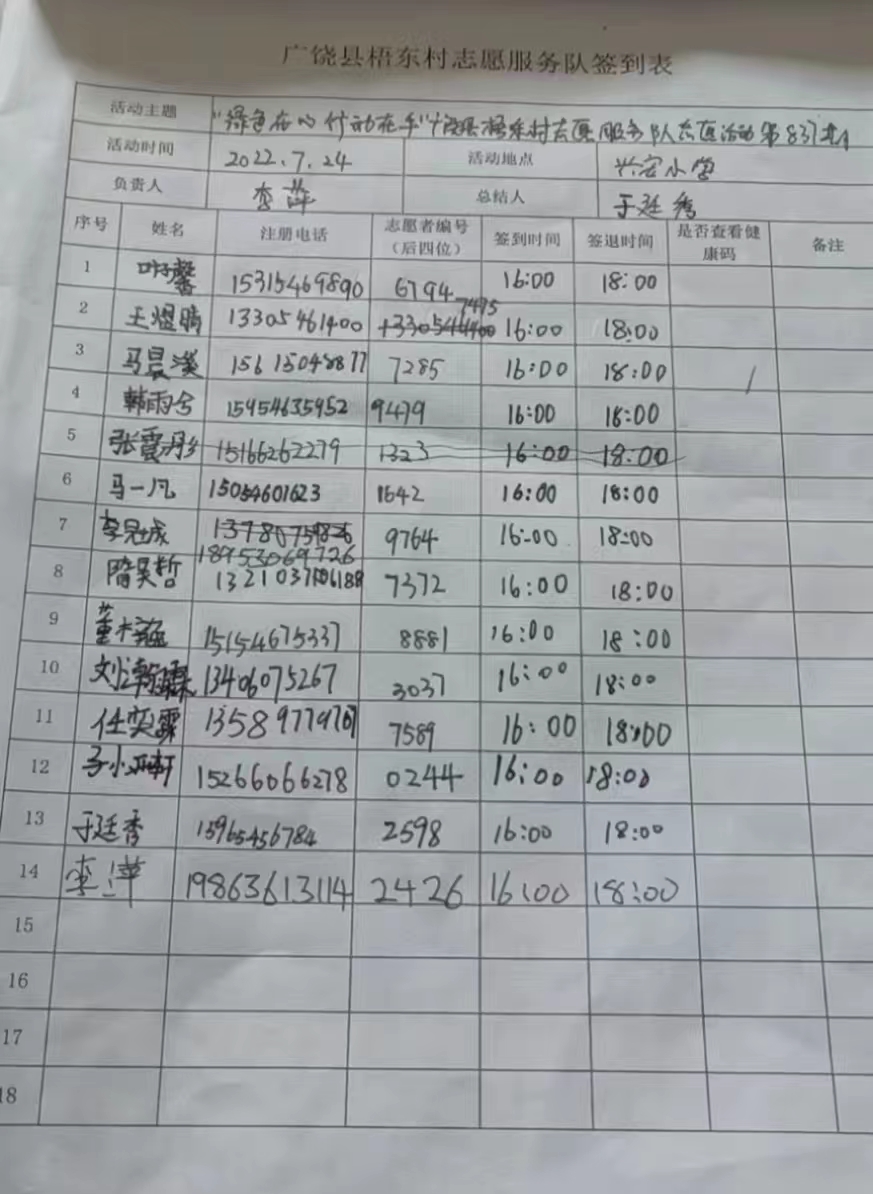 广饶县梧东村志愿服务队签到表
活动主题 "绿色在心 行动在手"广饶县梧东村志愿服务队志愿活动第837期
活动时间 2022.7.24 活动地点 兴宏小学
负责人 李萍 总结人 于廷秀
序号 姓名 注册电话 志愿者编号（后四位） 签到时间 签退时间 是否查看健康码 备注
1 15315469890 6794 16:00 18:00
2 王煜晴 13305461400 7495 16:00 18:00
3 马晨溪 7285 16:00 18:00
4 韩雨兮 15954635952 9479 16:00 18:00
5 张震彤 15166262279 1323 16:00 18:00
6 马一凡 15054601623 1642 16:00 18:00
7 李冠成 18953069726 9764 16:00 18:00
8 隋昊哲 7372 16:00 18:00
9 15154675337 8881 16:00 18:00
10 13406075267 3037 16:00 18:00
11 任奕霖 7589 16:00 18:00
12 15266066278 0244 16:00 18:00
13 于廷秀 15965456784 2598 16:00 18:00
14 李萍 19863613114 2426 16:00 18:00
15
16
17
18